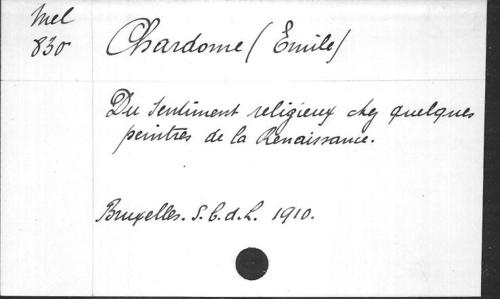 Mel
830
Chardome (Émile)
Du Sentiment religieux chez quelques
peintres de la Renaissance.
Bruxelles. S. b. d. L. 1910.